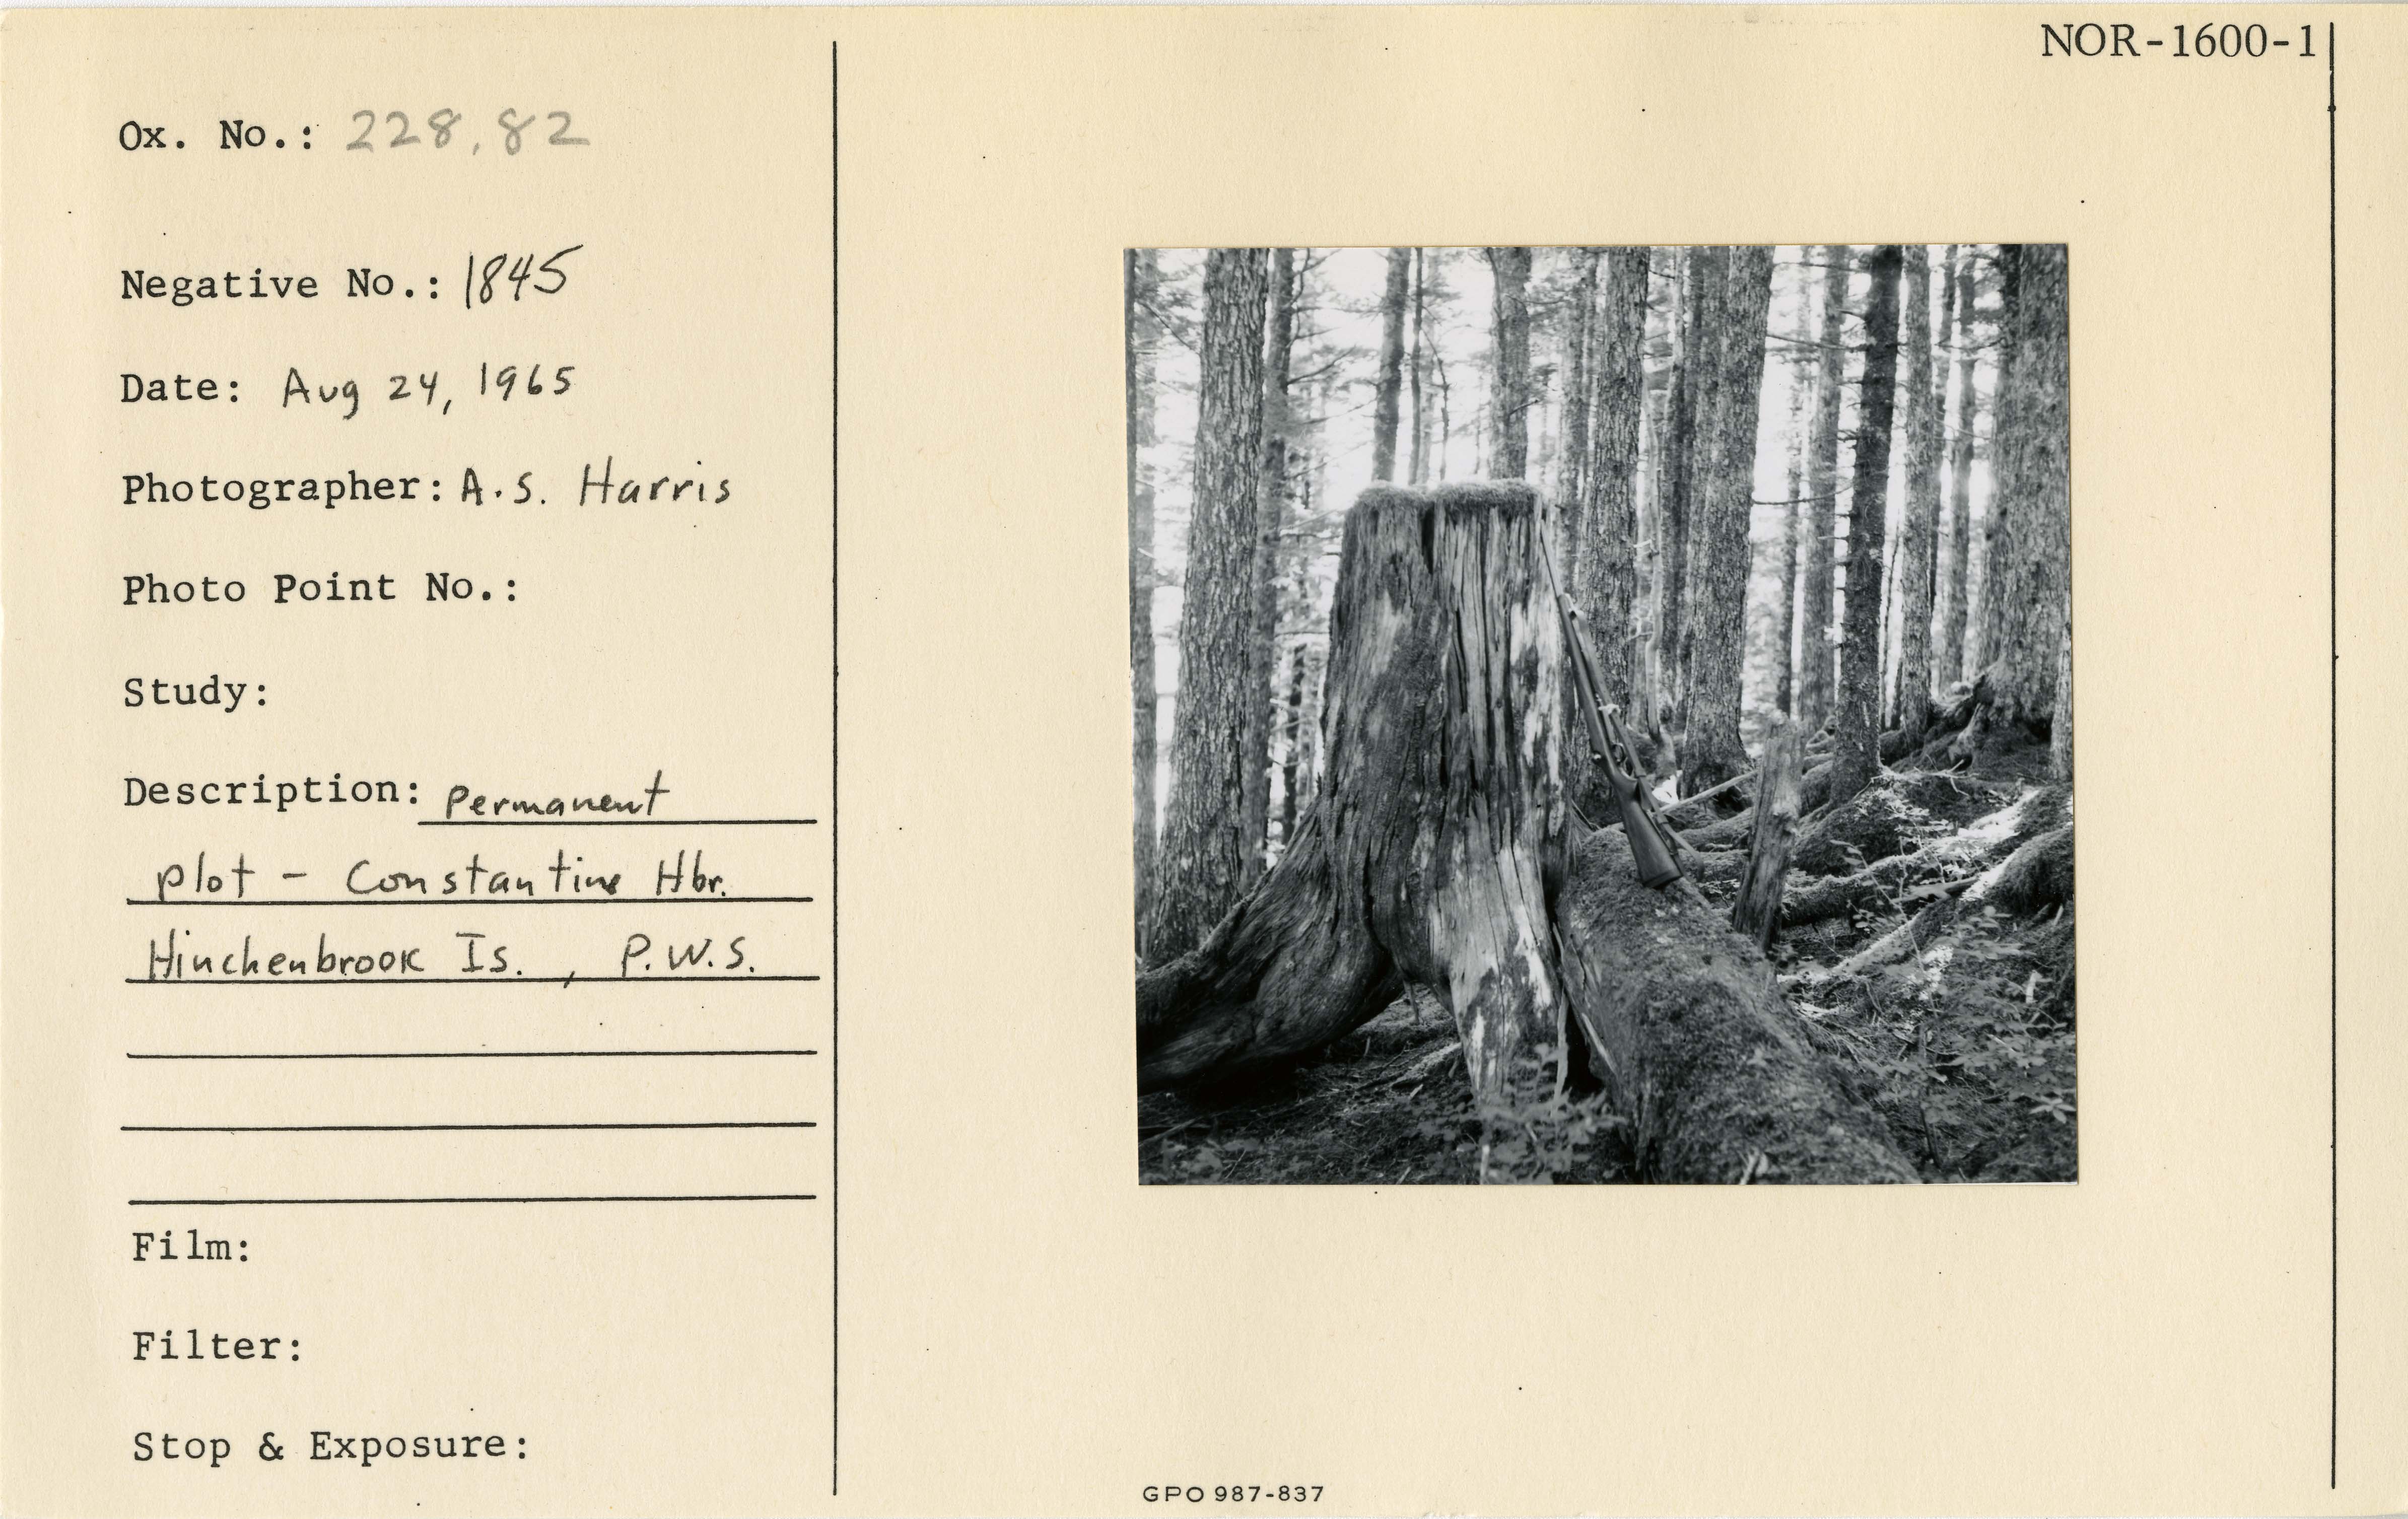 NOR-1600-1
Ox. No.: 228.82
Negative No.: 1845
Date: Aug 24, 1965
Photographer: A.S. Harris
Photo Point No.:
Study:
Description: Permanent
plot - Constantine Hbr.
Hinchenbrook Is., P.W.S.
Film:
Filter:
Stop & Exposure:
GPO 987-837